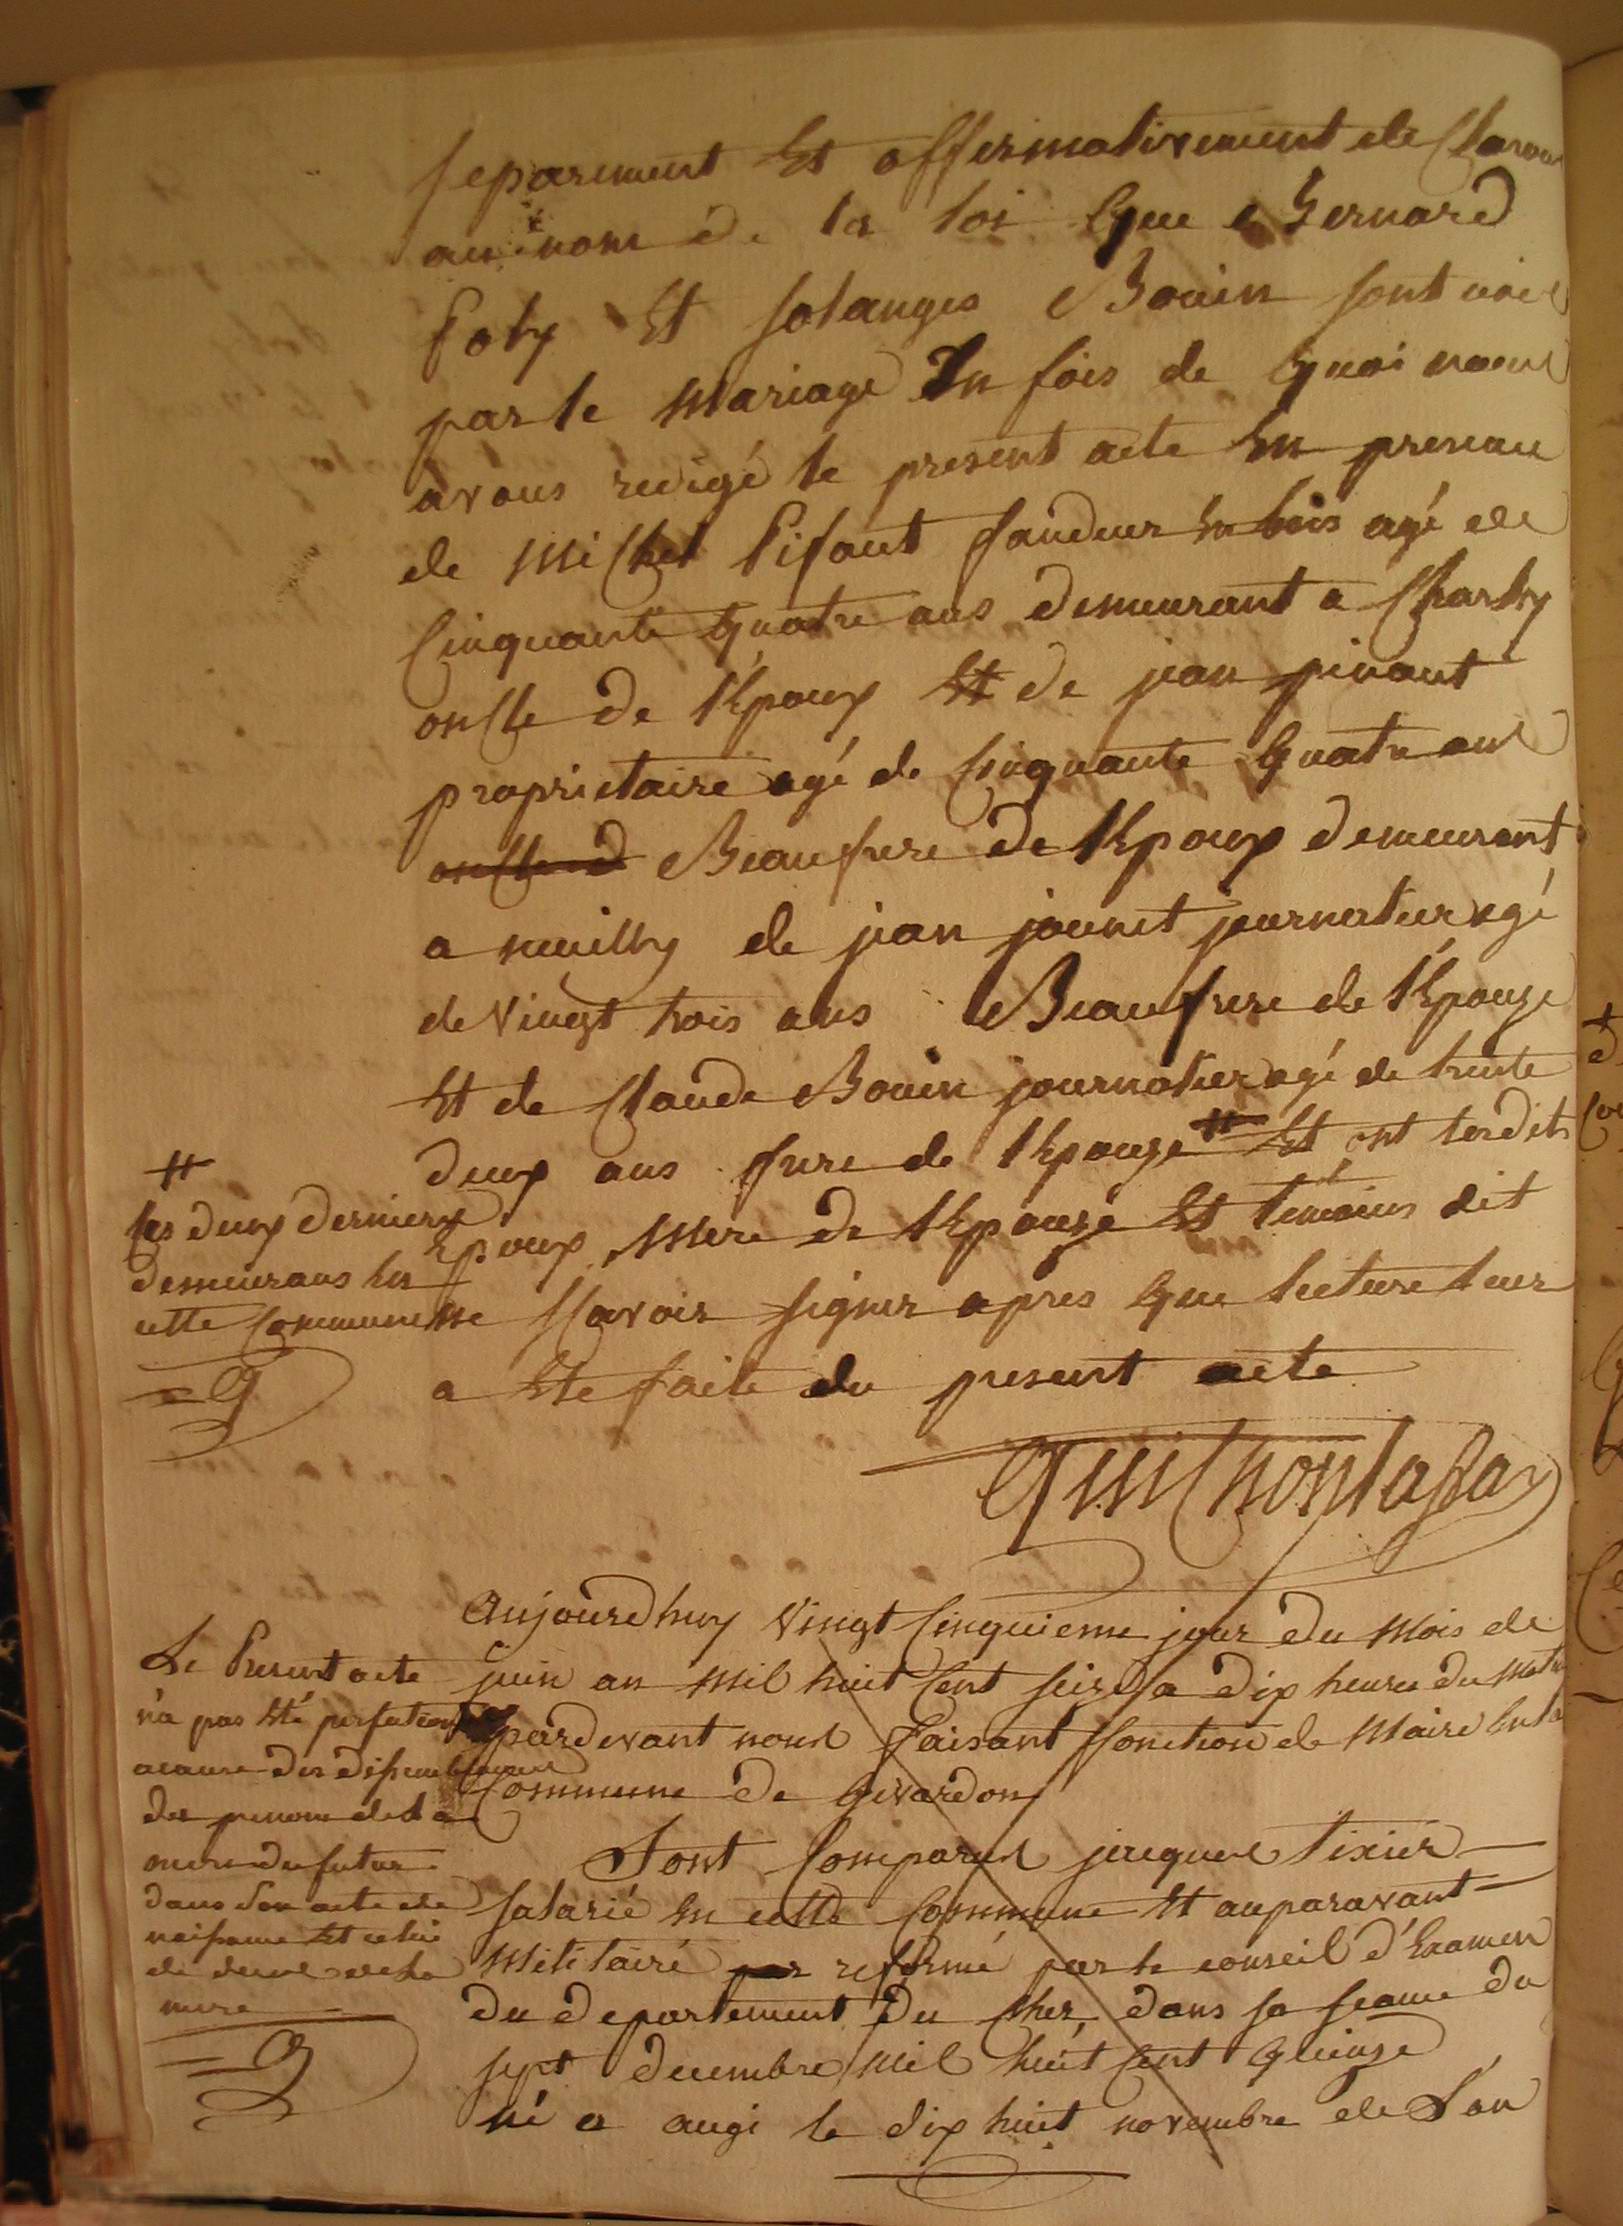 separement Et affirmativement declarons
au nom de la loi Que Bernard
Foly Et solanges Bouin sont unis
par le mariage En fois de Quoi nous
avons redigé le present acte En presence
de Michel Pifaut fandeur En bois agé de
Cinquante Quatre ans demeurant a Charly
oncle de l'Epoux Et de jean pinaut
proprietaire agé de Cinquante Quatre ans
oncle d Beaufrere de l'Epoux demeurant
a neuilly de jean jaunet journalier agé
de Vingt trois ans Beaufrere de l'Epouze
Et de Claude Bouin journalier agé de trente
deux ans frere de l'Epouze # Et ont lesdits
Epoux Mere de l'Epouze Et temoins dit
ne sçavoir signer apres Que lecture leur
a Ete faite du present acte
#
les deux derniers
demeurans En
cette Commune
=G
Guichon
Aujourdhuy Vingt Cinquieme jour du Mois de
juin an Mil huit Cent seize a dix heures du Matin
pardevant nous Faisant Fonction de Maire En la
Commune de Givardon
Sont Comparus jacques tixier
salarié En cette Commune Et auparavant
Militaire par reformé par le conseil d'Examen
du departement du Cher, dans sa seance du
sept decembre Mil huit Cent Quinze
né a augi le dix huit novembre de L'an
Le Present acte
n'a pas Eté
a cause des
des prenoms de la
mere du futur
dans son acte de
naissance Et celui
de deces de la
mere
=G